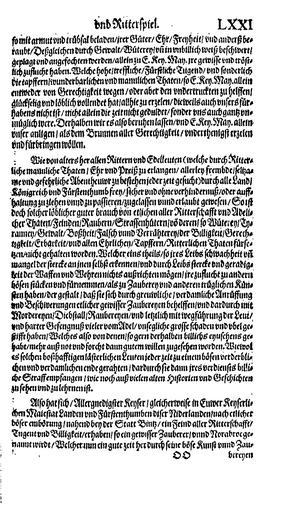 vnd Ritterspiel. LXXI
so mit armut vnd trübsal beladen/jrer Güter/ Ehr/ Freyheit/ vnd anders be-
raubt/ Desgleichen durch Gewalt/ Wüterey/ vñ in vnbillich weiß beschwert/
geplagt vnd angefochten werden/ allein zu E. Key. May. jre gewisse vnd tröst-
lich zuflucht haben. Welche hohe/ treffliche/ Fürstliche Tugend/ vnd sonderlich
die tapffern/ wunderbarlichen vnd mannlichen Thaten/ so E. Key. May. allein
entweder von Gerechtigkeit wegen / oder aber den vndertruckten zu helffen/
glückselig vnd löblich vollendet hat/ allhie zu erzelen/ dieweil auch vnsers für-
habens nicht ist/ nicht allein die zeit nicht geduldet/ sonder vns auch gantz vn-
müglich were. Derhalben wir es also beruhen lassen/ vnd E. Key. May. allein
vnser anligen/ als dem Brunnen aller Gerechtigkeit/ vnderthenigst erzelen
vnd fürbringen wöllen.
Wie von alters her allen Rittern vnd Edelleuten (welche durch Ritter-
liche mannliche Thaten / Ehr vnd Preiß zu erlangen/ allerley frembde/ seltza-
me vnd gefehrliche Abenthewr zu besuchen) jeder zeit gesuch/ durch alle Land/
Königreich vnd Fürstenthumb frey/ sicher vnd ohne verhindernuß/ oder auff-
haltung zu ziehen vnnd zu passieren/ zugelassen vnnd erlaubt gewesen/
doch solcher löblicher guter brauch von etlichen aller Ritterschafft vnd Adeli-
cher Thaten/ Feinden/
Gerech-
tigkeit/ Erbarkeit/ vnd allen Ehrlichen/ Tapffern/ Ritterlichen Thaten fürse-
tzen/ nicht gehalten worden. Welcher eins theils/ so jres Leibs schwachheit
mangel der stercke
keit der Waffen vnd Wehren nichts außrichten mögen/ jre zuflucht zu andern
bösen tücken vnd
sten haben/ der gestalt/ daß sie sich durch grewliche/ verdamliche Anrüffung
vnd Beschwerungen etlicher geeister Zauberey beholffen/ vnd dardurch mit
Mördereyen/ Diebstall/ Raubereyen/ vnd letzlich mit wegführung der Leut/
vnd harter Gefengnuß vieler vom Adel/ vnsegliche grosse schaden vnd vbel ge-
stifft haben/ Welches also von denen/ so gern derhalben billichs
habe/ mehr auß not von sprech baum gutem willen zugesehen worden. Wiewol
es solchen boßhafftigen lästerlichen Leuten jeder zeit zu einem bösen verderbli-
chen vnd verdamlichen ende gerahten/ dardurch sie dann jres verdiensts billi-
che Straff empfangen / wie noch auß vielen alten Historien vnd Geschichten
zu sehen vnd zu lehrnen ist.
Also hat sich / Allergnedigster Keyser/ gleicherweise in Euwer Keyserli-
chen Maiestat Landen vnd Fürstenthumben diser Niderlanden/ nach etlicher
böser empörung/ nahend bey der Statt Bintz/ ein Feind aller Ritterschafft/
Tugent vnd Billigkeit/ erhaben/ so ein gewisser Zauberer/ vnnd Norabroc ge-
nannt wirdt/ Welcher nun ein gute zeit her durch seine böse Kunst vnnd Zau-
OO bereyen